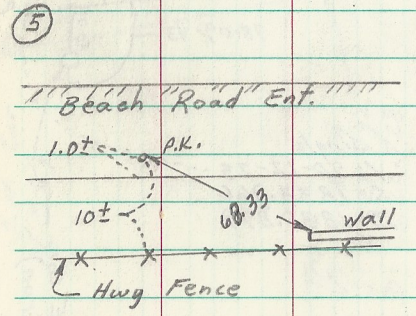 5
Beach Road Ent.
1.0± P.K.
10± 68.33 Wall
Hwy Fence